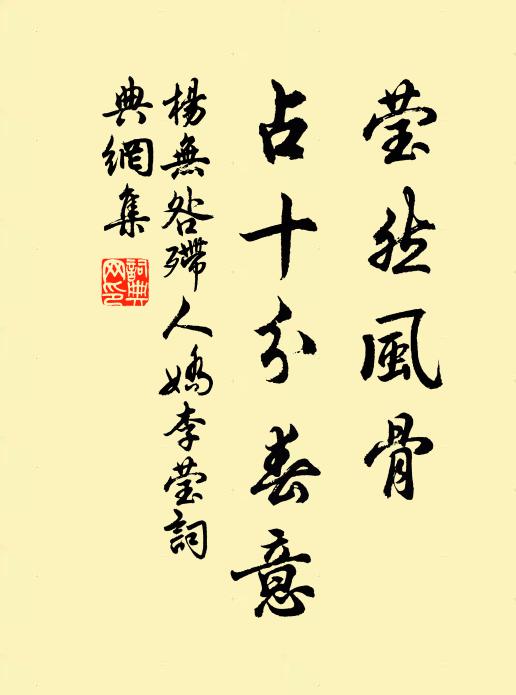 莹然风骨
占十分春意
楊無咎殢人嬌李莹詞
典網集
詞典网印